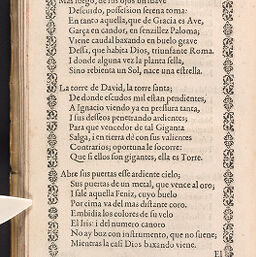 Mas luego, de los ojos
Descuido, possession serena toma:
En tanto aquella, que de Gracia es Ave,
Garça en candor, en senzillez Paloma;
Viene caudal baxando en buelo grave
Dessa, que habita Dios, triunfante Roma.
I donde alguna vez la planta sella,
Sino rebienta un Sol, nace una estrella.
La torre de David, la torre santa;
De donde escudos mil estan pendientes,
A Ignacio viendo ya en pressura tanta,
I sus desseos penetrando ardientes;
Para que vencedor de tal Giganta
Salga, i en tierra dè con sus valientes
Contrarios; oportuna le socorre:
Que si ellos son gigantes, ella es Torre.
Abre sus puertas esse ardiente cielo;
Sus puertas de un metal, que vence al oro;
I sale aquella Feniz, cuyo buelo
Por cima va del mas distante coro.
Embidia los colores de su velo
El Iris: i del numero canoro
No ay boz con instrumento, que no suene;
Mientras la casi Dios baxando viene.
El